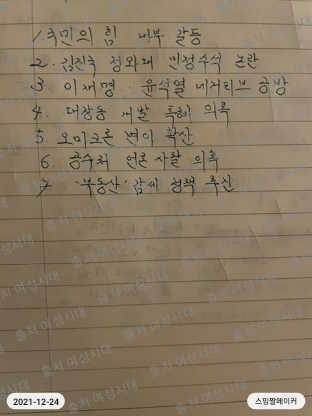 1. 국민의 힘 내부 갈등
2. 김진국 청와대 민정수석 논란
3. 이재명 · 윤석열 네거티브 공방
4. 대장동 개발 특혜 의혹
5. 오미크론 변이 확산
6. 공수처 언론 사찰 의혹
7 '부동산' 감세 정책 추진
출처 여성시대
2021-12-24
스밍짤메이커